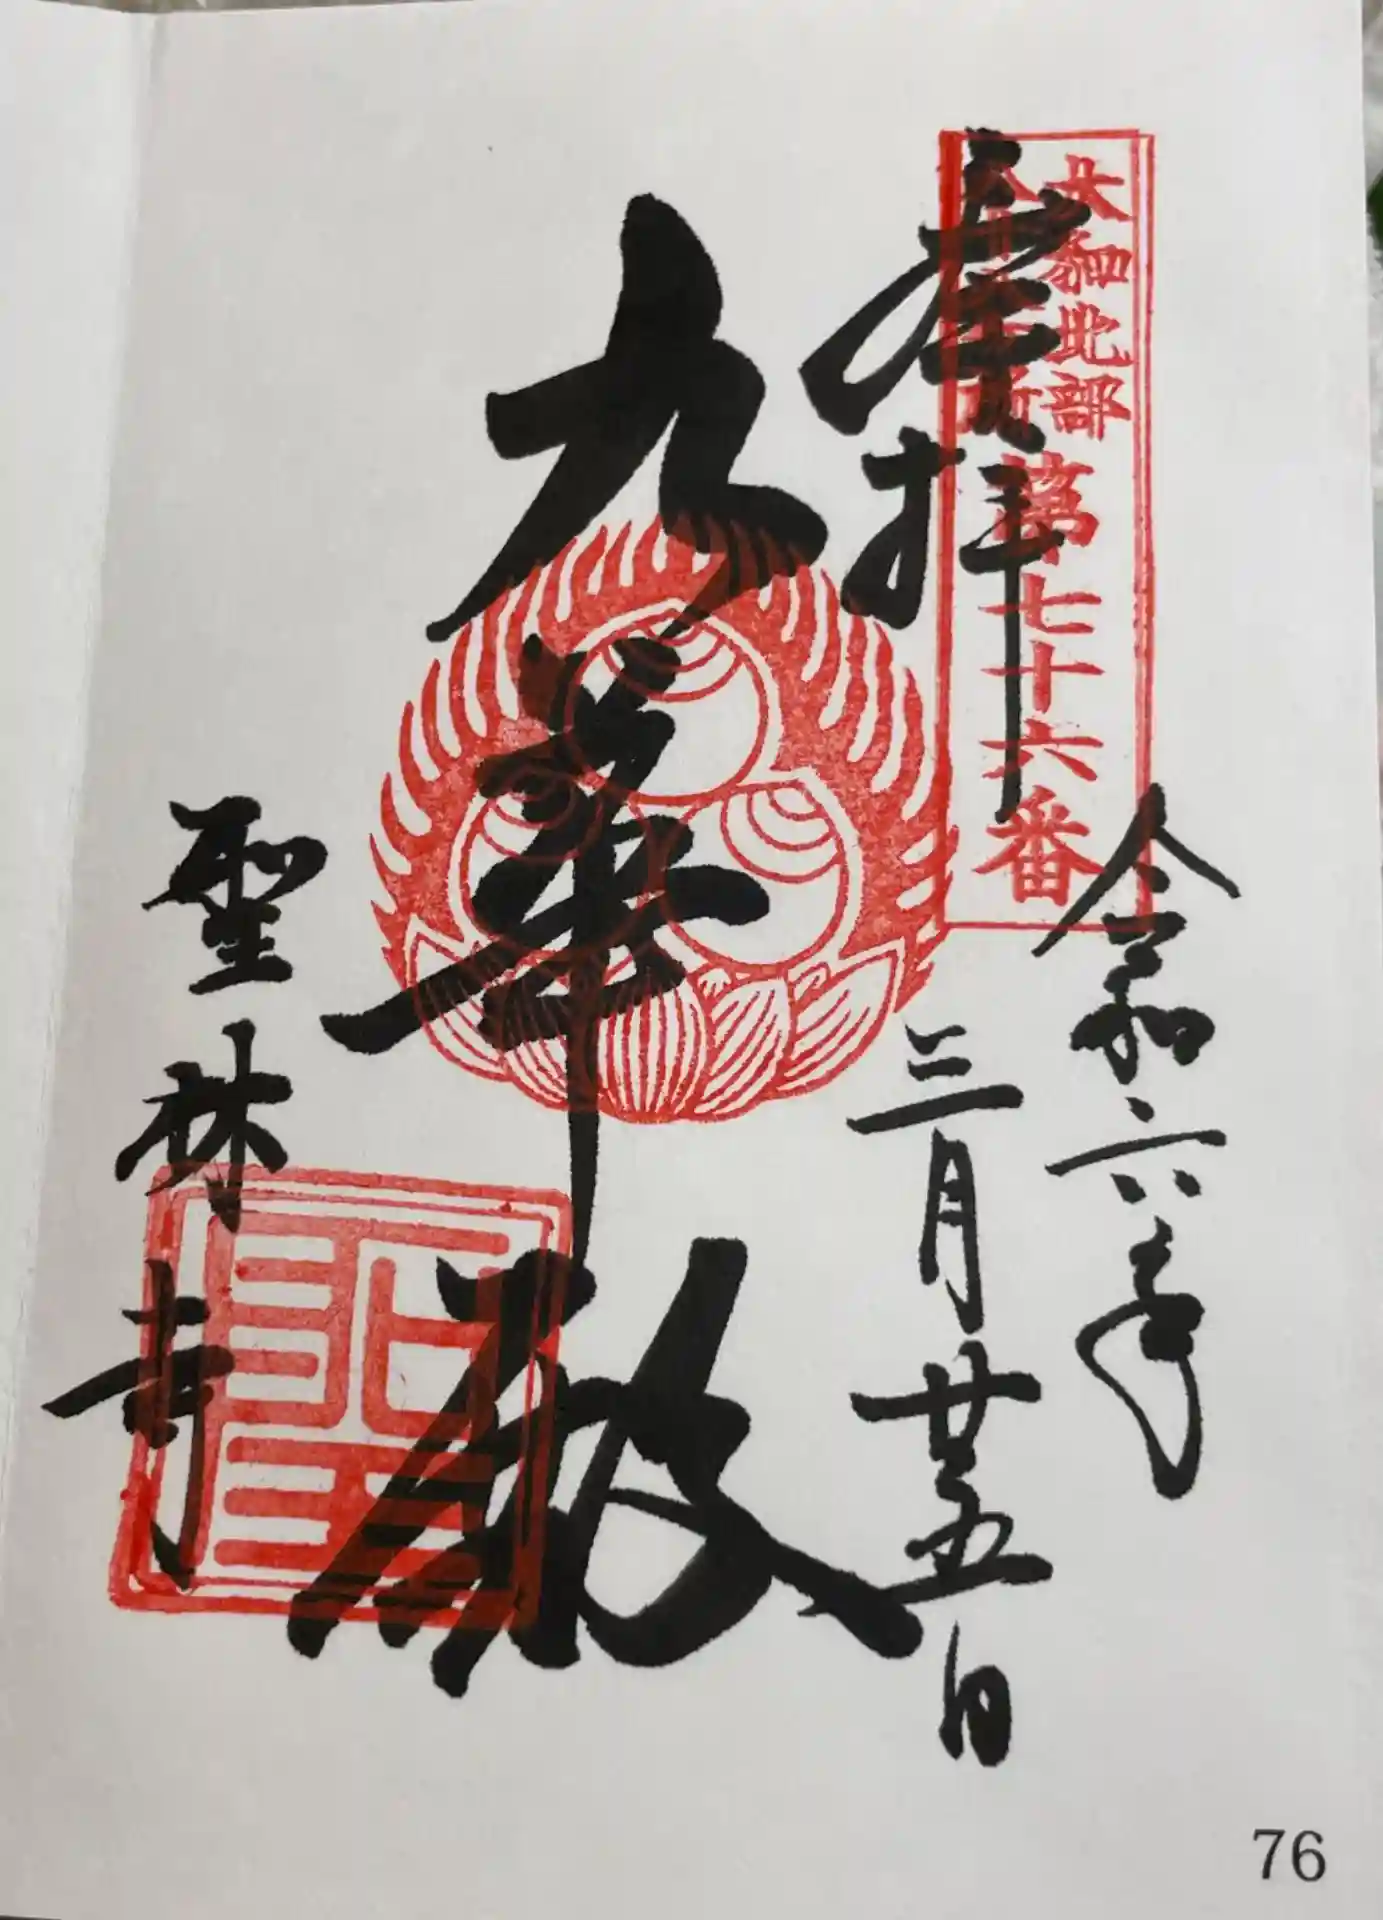 大和北部
八十八所
第七十六番
奉拝
令和六年
三月廿五日
九華殿
聖林寺
76